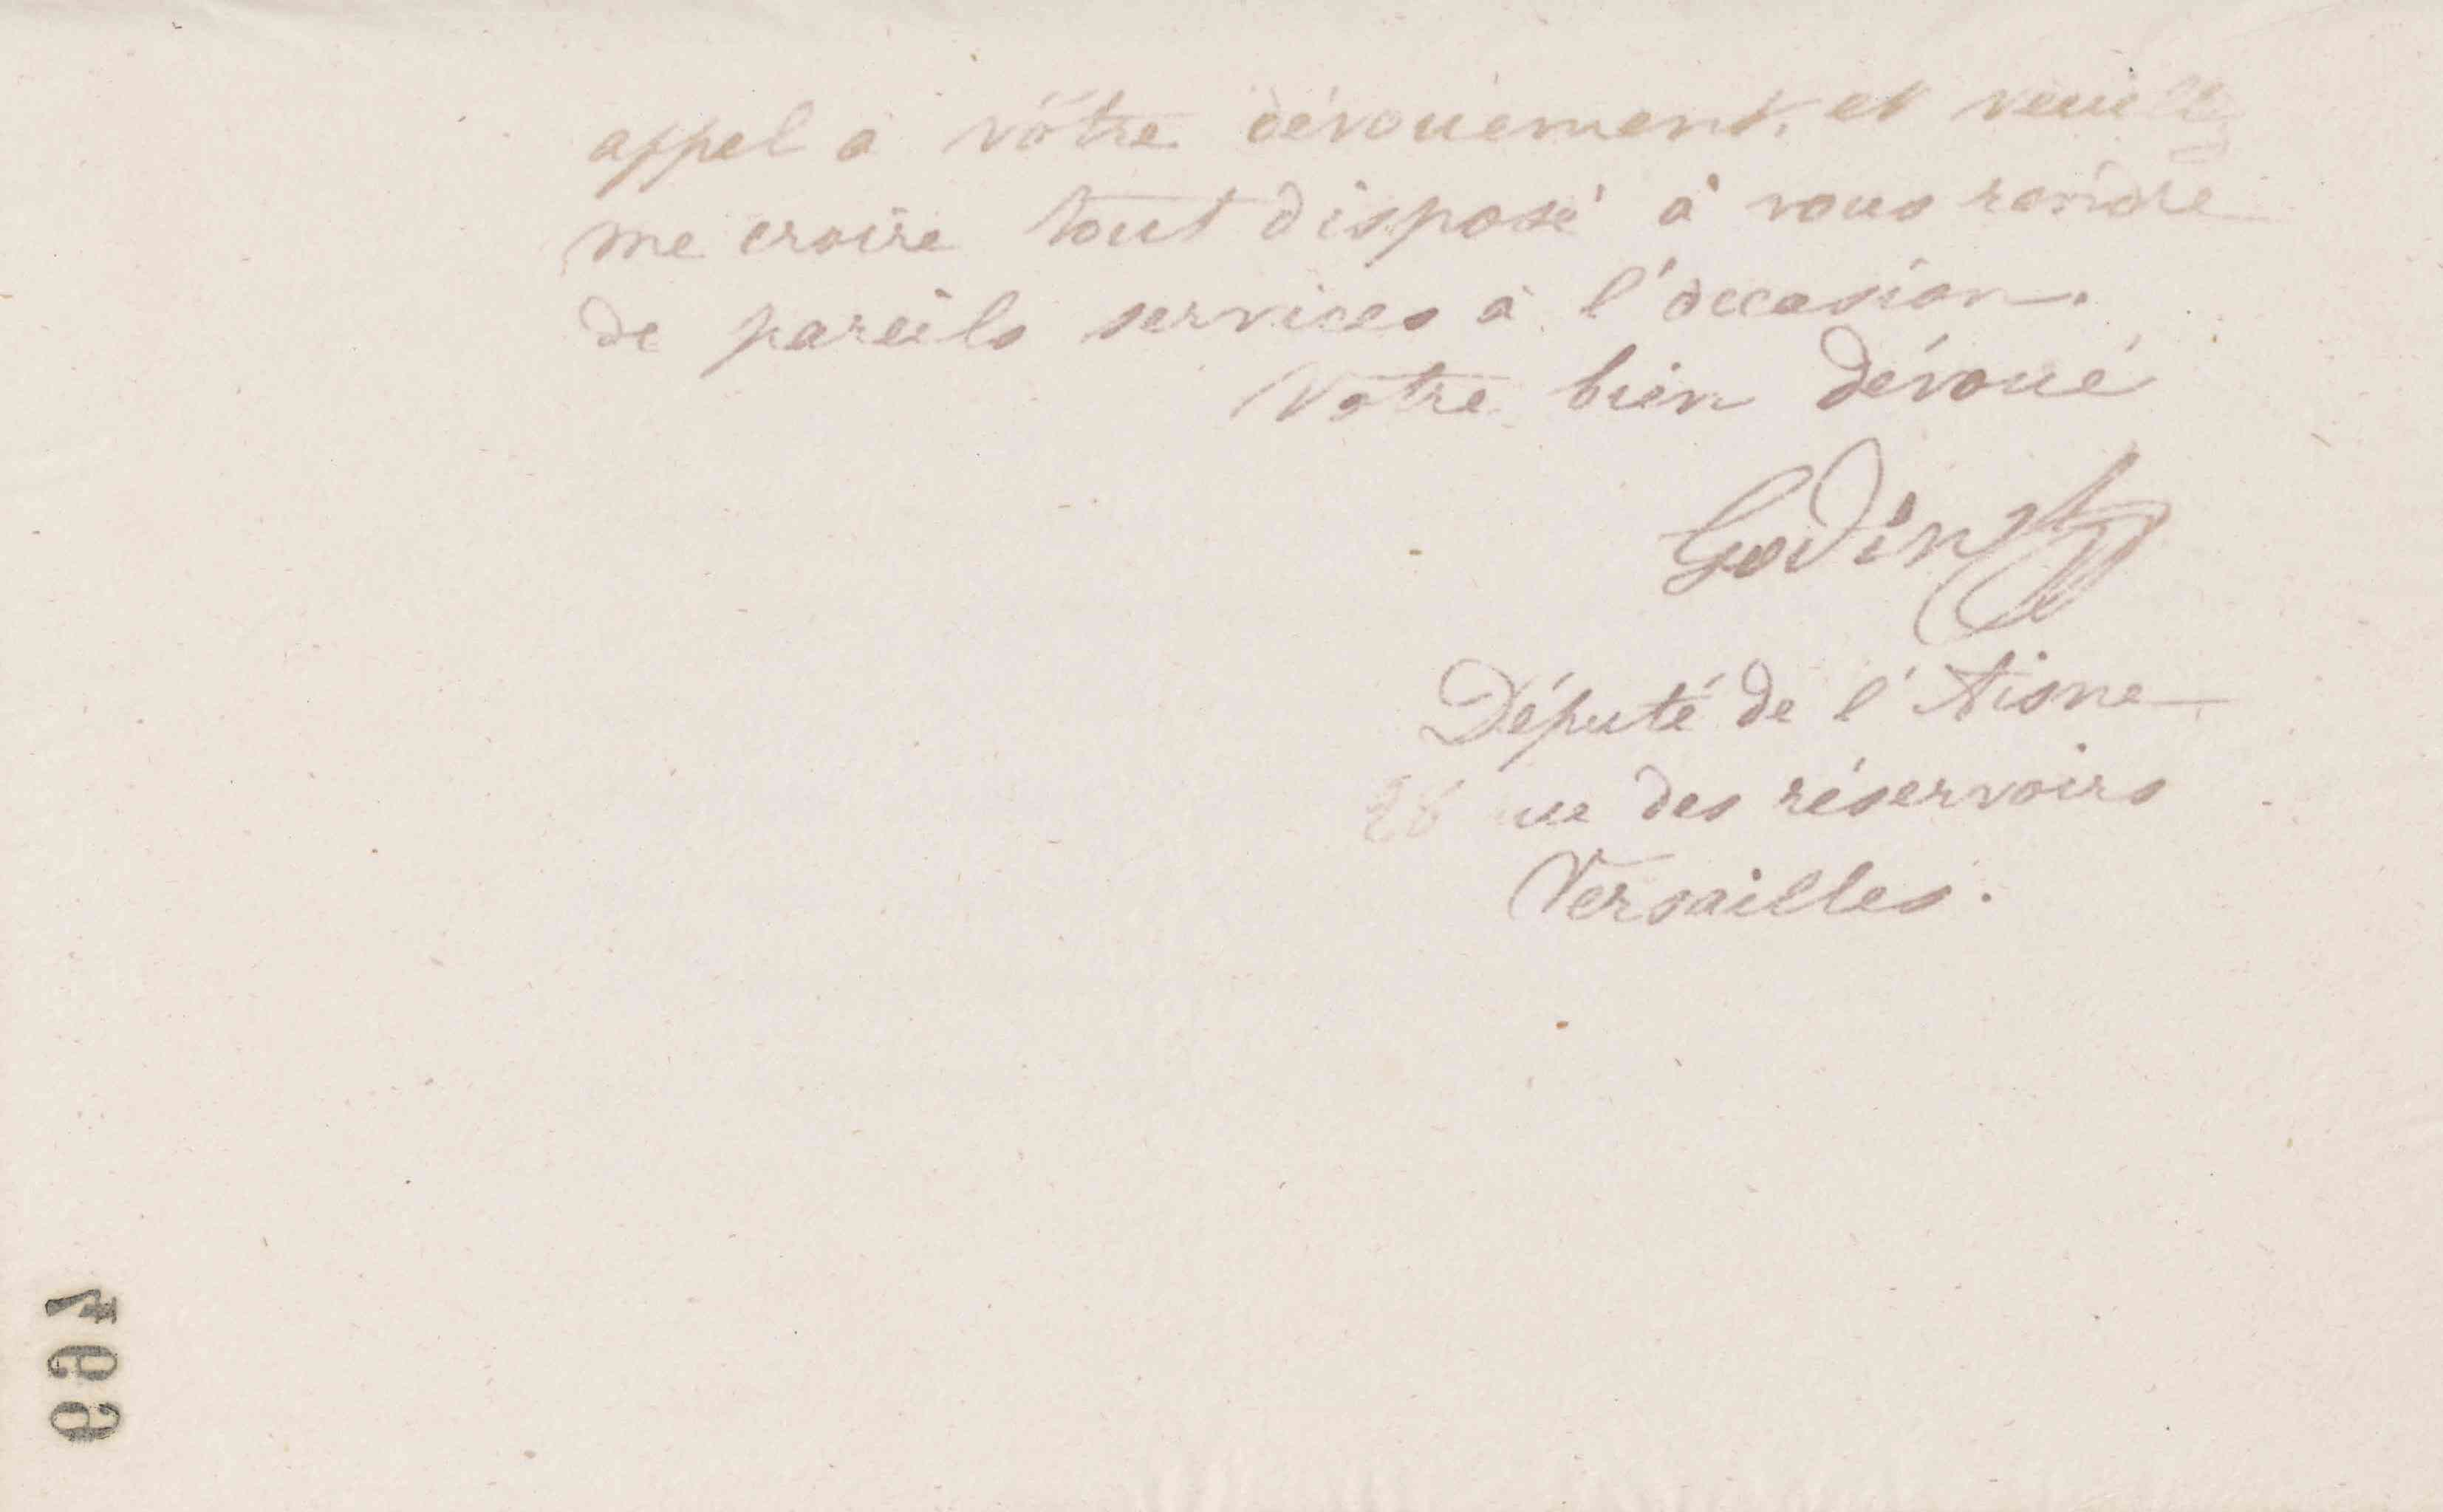 appel à vôtre dévouement, et veuillez
me croire tout disposé à vous rendre
de pareils services à l'occasion.
Votre bien dévoué
Godin
Député de l'Aisne
rue des réservoirs
Versailles.